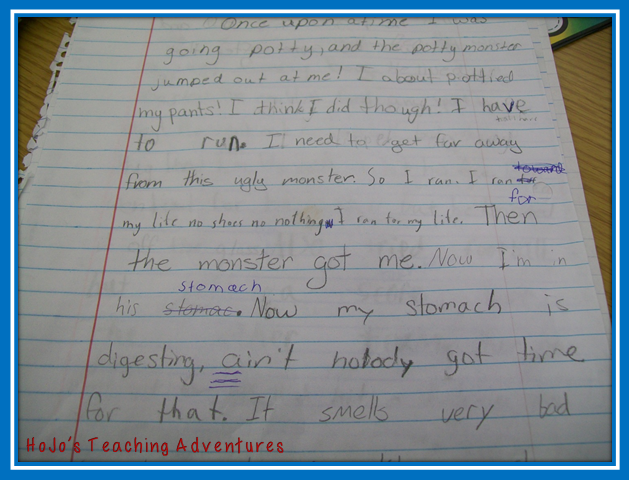 Once upon a time I was
going potty, and the potty monster
jumped out at me! I about pottied
my pants! I think I did though! I have
to run. I need to get far away
toward
from this ugly monster. So I ran. I ran for
for
my life no shoes no nothing, I ran for my life. Then
the monster got me. Now I'm in
stomach
his stomac. Now my stomach is
digesting, ain't nobody got time
for that. It smells very bad
HoJo's Teaching Adventures